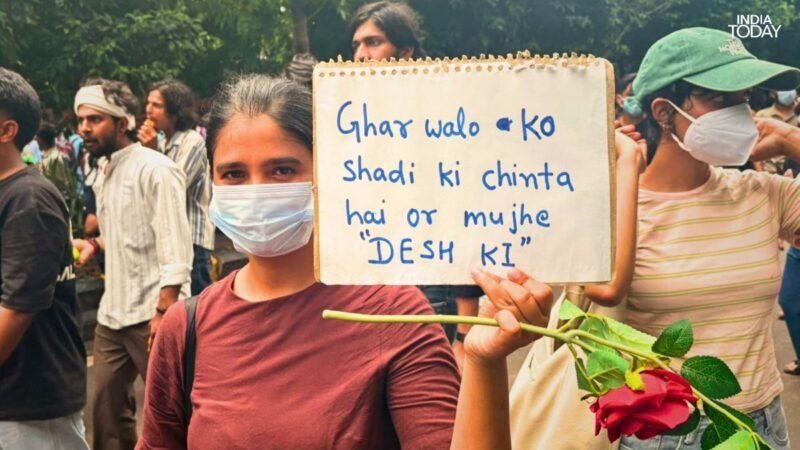 INDIA
TODAY
Ghar walo ko
shadi ki chinta
hai or mujhe
"DESH KI"